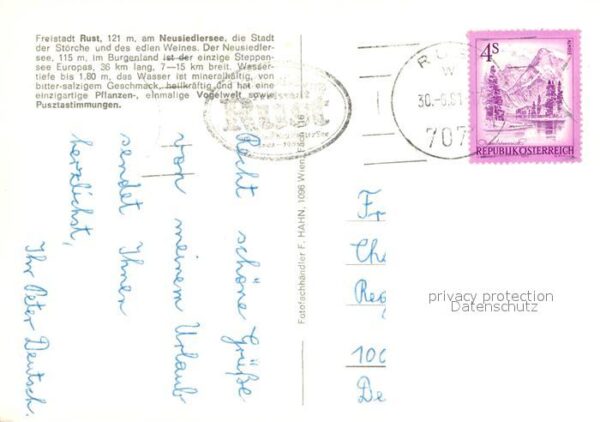 Freistadt Rust, 121 m, am Neusiedlersee, die Stadt
der Störche und des edlen Weines. Der Neusiedler-
see, 115 m, im Burgenland ist der einzige Steppen-
see Europas, 36 km lang, 7—15 km breit. Wasser-
tiefe bis 1.80 m, das Wasser ist mineralhältig, von
bitter-salzigem Geschmack, heilkräftig und hat eine
einzigartige Pflanzen-, einmalige Vogelwelt sowie
Pusztastimmungen.
4s
REPUBLIK ÖSTERREICH
RUST
30.-6.81
707
Recht schöne Grüße
von meinem Urlaub
sendet Ihnen
herzlichst,
Ihr Peter Deutsch.
Fotofachhändler F. HAHN, 1096 Wien, Fach 116
Fr
Ch
Reg
100
De
privacy protection
Datenschutz